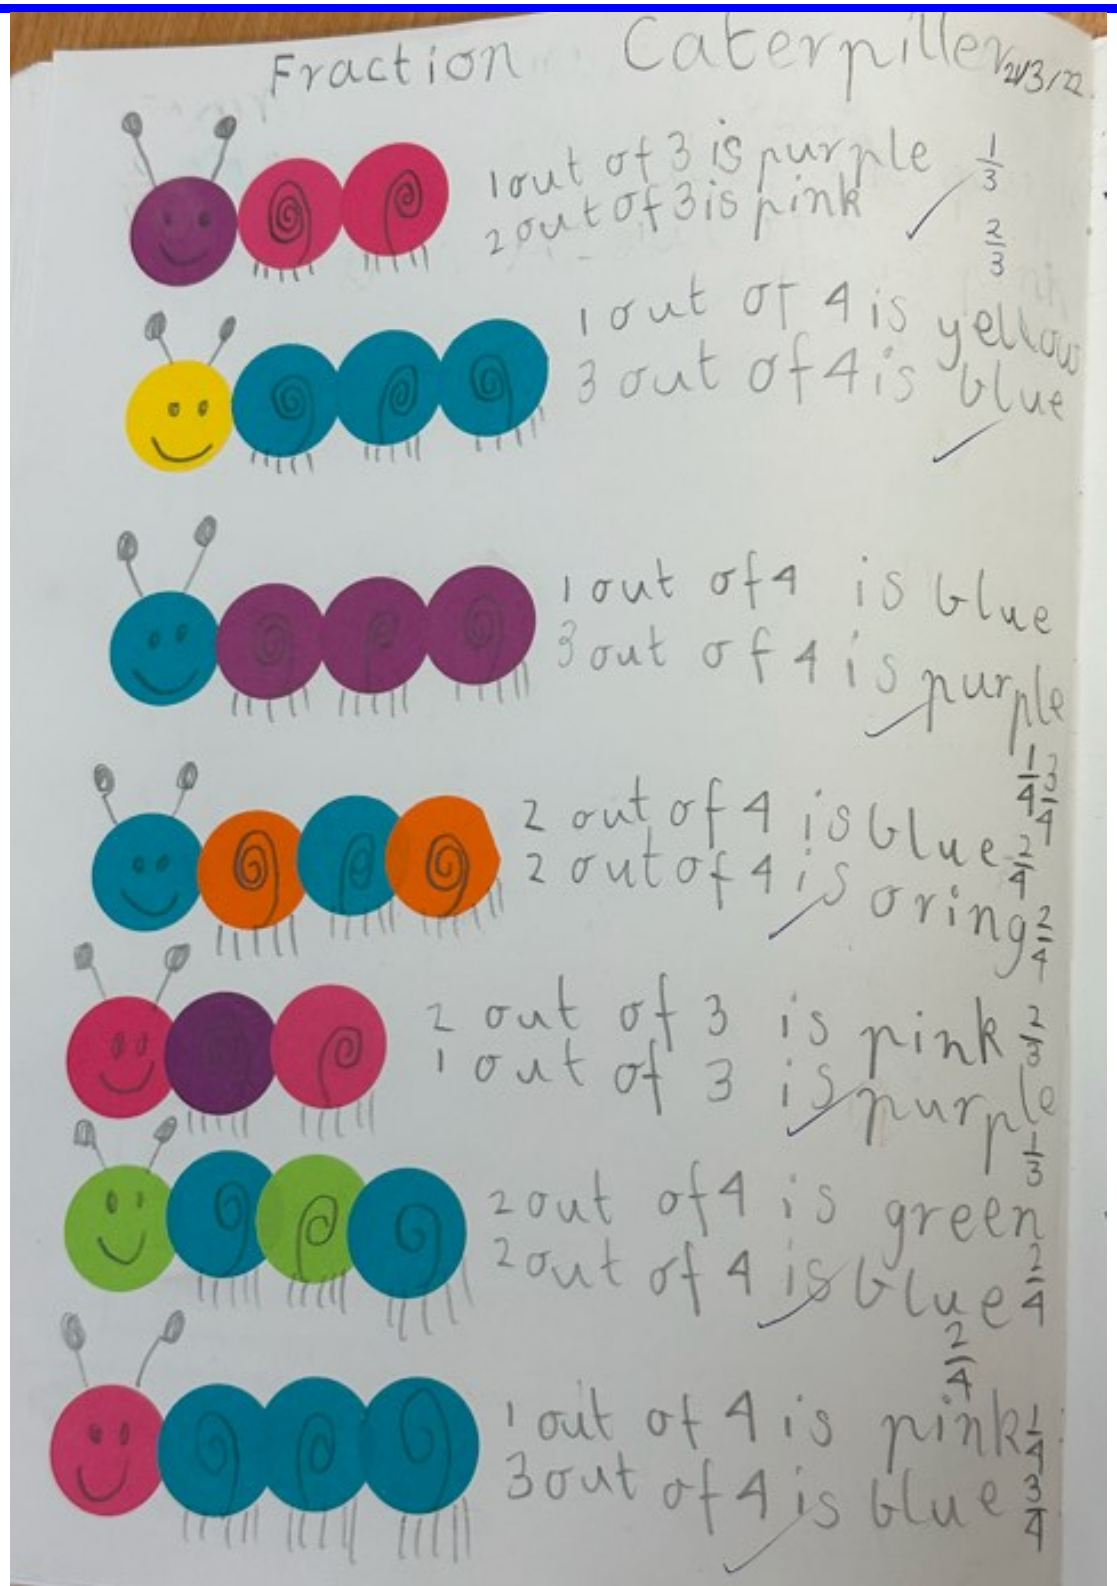 Fraction Caterpiller 21/3/22
1 out of 3 is purple 1/3
2 out of 3 is pink
2/3
1 out of 4 is yellow
3 out of 4 is blue
1 out of 4 is blue
3 out of 4 is purple
1/4 3/4
2 out of 4 is blue 2/4
2 out of 4 is oring 2/4
2 out of 3 is pink 2/3
1 out of 3 is purple
1/3
2 out of 4 is green
2 out of 4 is blue 2/4
2/4
1 out of 4 is pink 1/4
3 out of 4 is blue 3/4